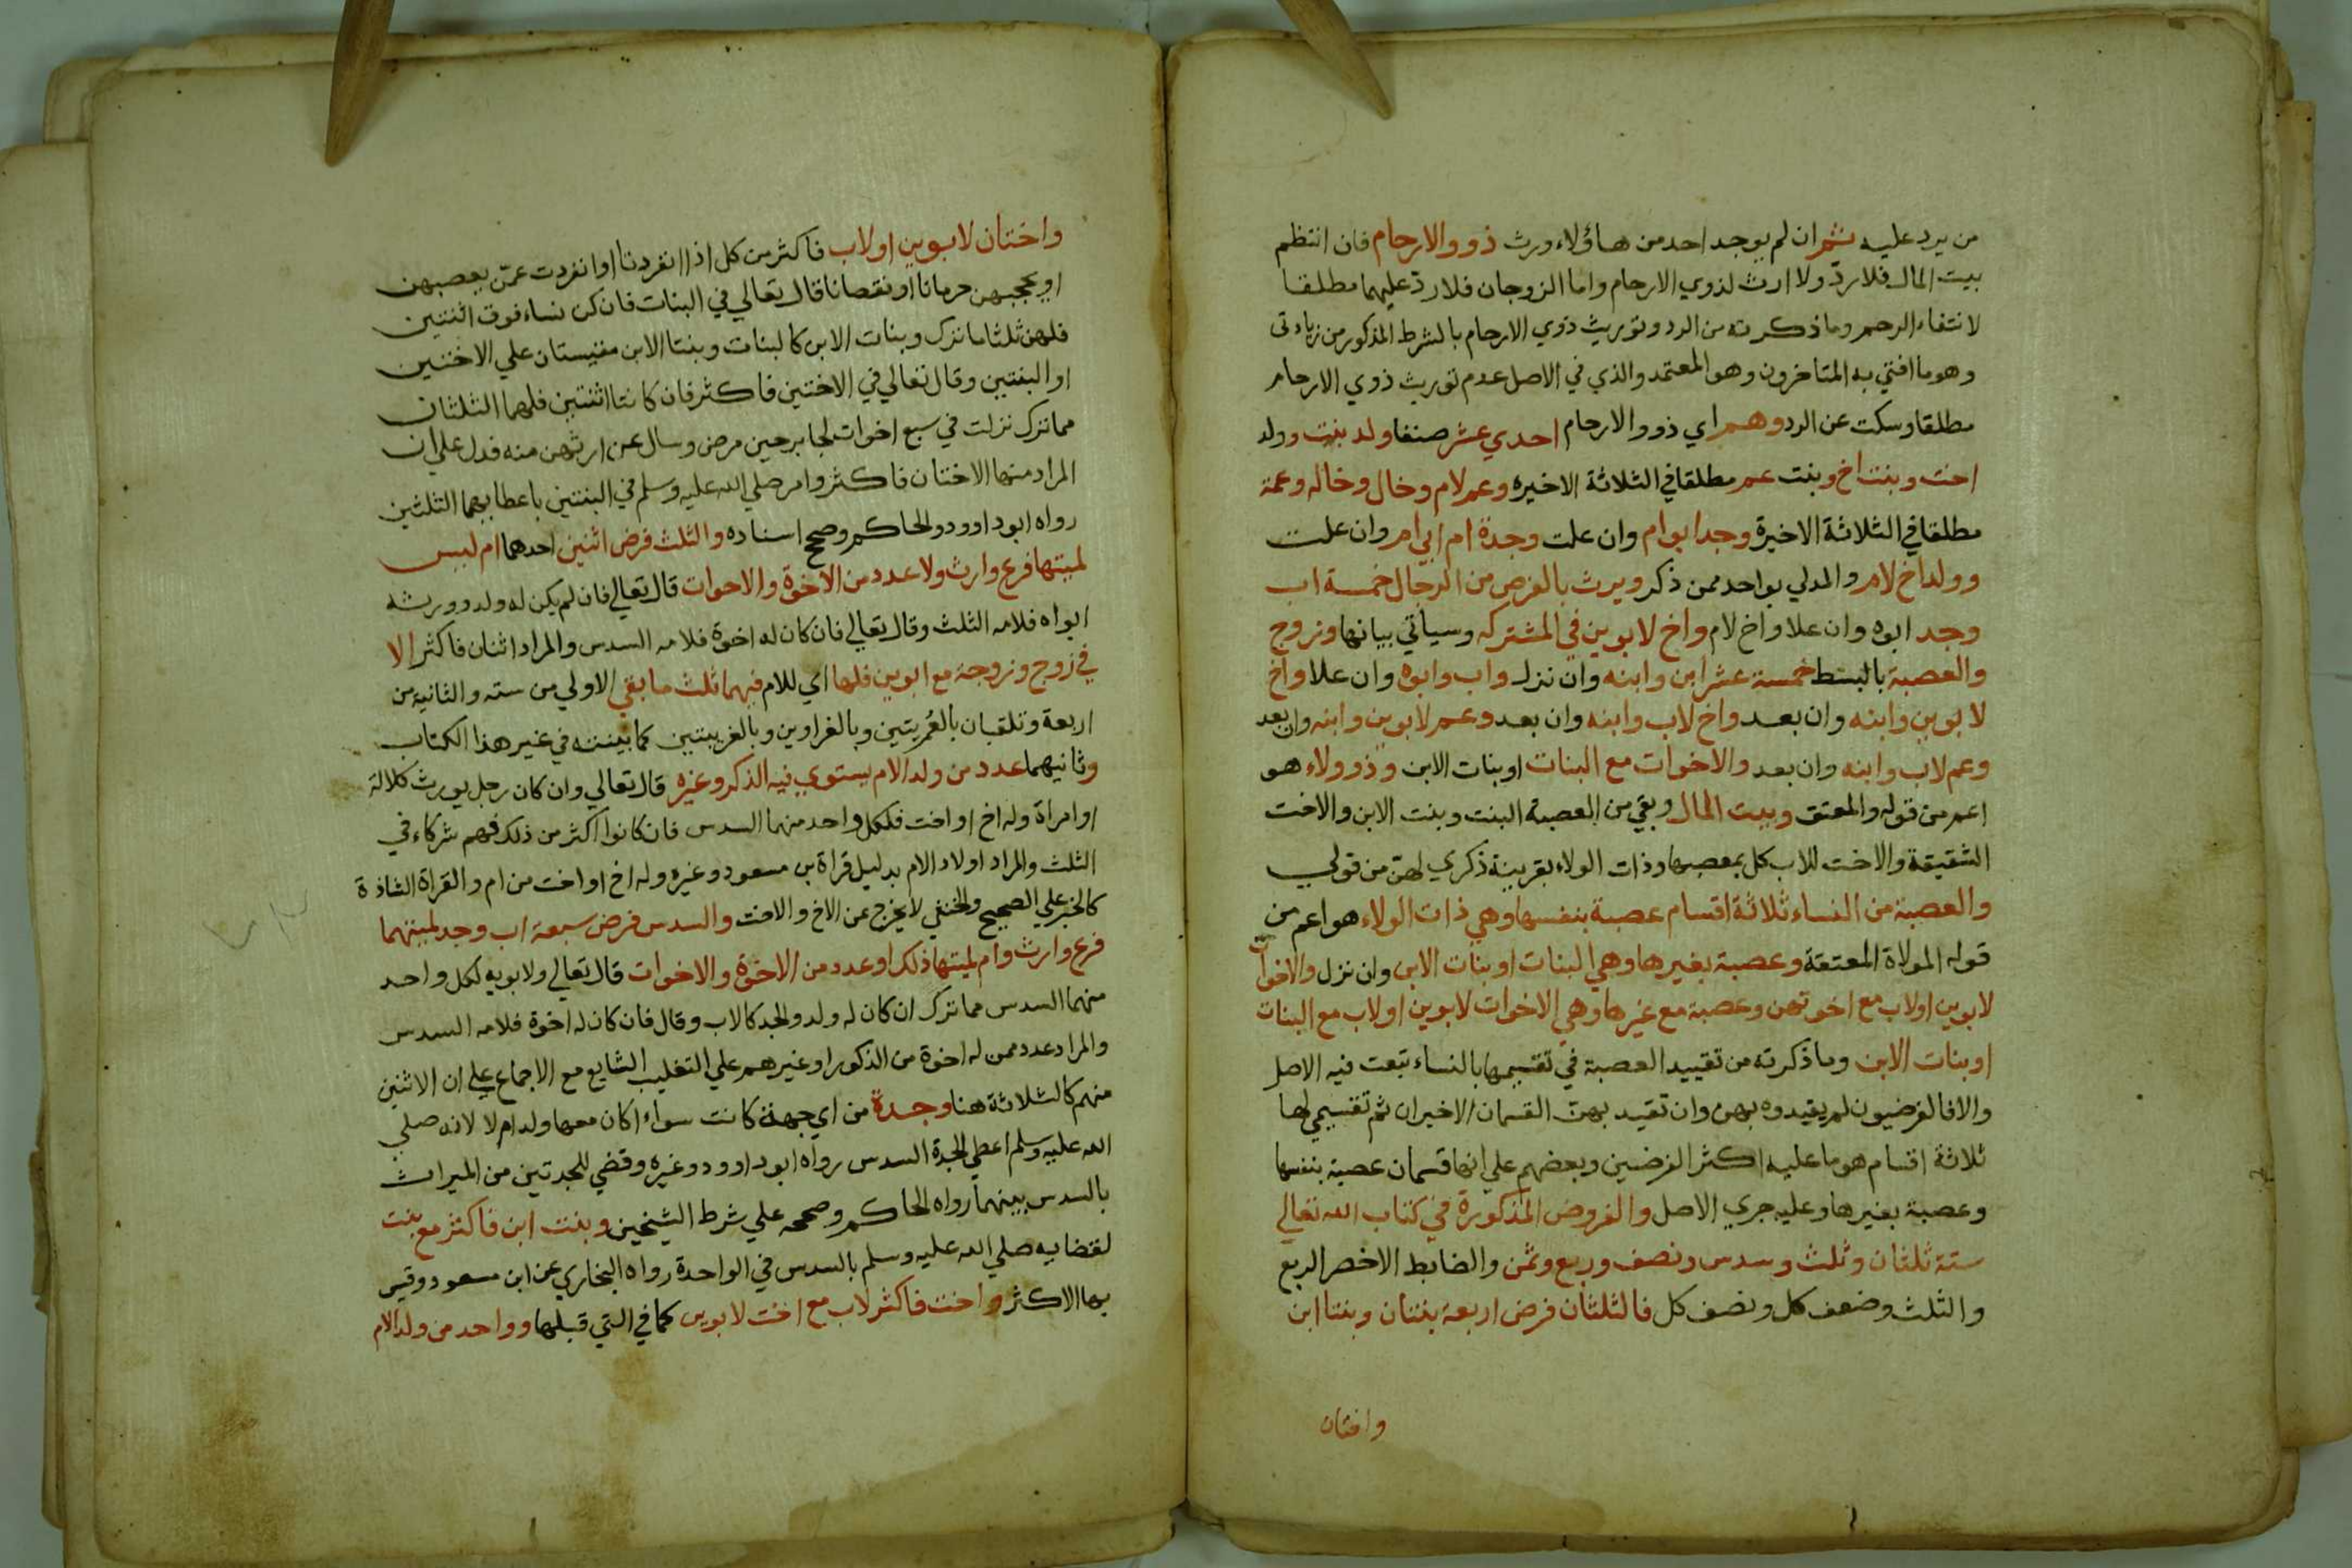 من يرد عليه ثم ان لم يوجد احد من هاؤلاء ورث ذوو الارحام فان انتظم
بيت المال فلا ردّ ولا ارث لذوي الارحام واما الزوجان فلا ردّ عليهما مطلقا
لانتفاء الرحم وما ذكرته من الرد وتوريث ذوي الارحام بالشرط المذكور من زيادتى
وهو ما افتي به المتاخرون وهو المعتمد والذي في الاصل عدم توريث ذوي الارحام
مطلقا وسكت عن الرد وهم اي ذوو الارحام احدي عشر صنفا ولد بنت وولد
اخت وبنت اخ وبنت عم مطلقا في الثلاثة الاخيره وعم لام وخال وخاله وعمة
مطلقا في الثلاثة الاخيرة وجد ابو ام وان علت وجدة ام ابي ام وان علت
وولد اخ لام والمدلي بواحد ممن ذكر ويرث بالفرض من الرجال خمسة اب
وجد ابوه وان علا واخ لام واخ لابوين في المشتركه وسياتي بيانها وزوج
والعصبة بالبسط خمسة عشر ابن وابنه وان نزل واب وابوه وان علا واخ
لابوين وابنه وان بعد واخ لاب وابنه وان بعد وعم لابوين وابنه وان بعد
وعم لاب وابنه وان بعد والاخوات مع البنات او بنات الابن وذو ولاء هو
اعم من قوله والمعتق وبيت المال وبقي من العصبة البنت وبنت الابن والاخت
الشقيقة والاخت للاب كل بمعصبها وذات الولاء بقرينة ذكري لهنّ من قولي
والعصبة من النساء ثلاثة اقسام عصبة بنفسها وهي ذات الولاء هو اعم من
قوله المولاة المعتقة وعصبة بغيرها وهي البنات او بنات الابن وان نزل والاخوات
لابوين او لاب مع اخوتهن وعصبة مع غيرها وهي الاخوات لابوين او لاب مع البنات
او بنات الابن وما ذكرته من تقييد العصبة في تقسيمها بالنساء تبعت فيه الاصل
والا فالفرضيون لم يقيدوه بهن وان تقيد بهنّ القسمان الاخيران ثم تقسيمي لها
ثلاثة اقسام هو ما عليه اكثر الفرضيين وبعضهم علي انها قسمان عصبة بنفسها
وعصبة بغيرها وعليه جري الاصل والفروض المذكورة في كتاب الله تعالي
ستة ثلثان وثلث وسدس ونصف وربع وثمن والضابط الاخصر الربع
والثلث وضعف كل ونصف كل فالثلثان فرض اربعة بنتان وبنتا ابن
واختان
واختان لابوين او لاب فاكثر من كل اذا انفردتا او انفردت عمّن يعصبهن
او يحجبهن حرمانا او نقصانا قال تعالي في البنات فان كن نساء فوق اثنتين
فلهن ثلثا ما ترك وبنات الابن كالبنات وبنتا الابن مقيستان علي الاختين
او البنتين وقال تعالي في الاختين فاكثر فان كانتا اثنتين فلهما الثلثان
مما ترك نزلت في سبع اخوات لجابر حين مرض وسال عن ارثهن منه فدل علي ان
المراد منها الاختان فاكثر وامر صلي الله عليه وسلم في البنتين باعطايهما الثلثين
رواه ابو داوود والحاكم وصحح اسناده والثلث فرض اثنين احدهما ام ليس
لميتها فرع وارث ولا عدد من الاخوة والاخوات قال تعالي فان لم يكن له ولد وورثه
ابواه فلامه الثلث وقال تعالي فان كان له اخوة فلامه السدس والمراد اثنان فاكثر الا
في زوج وزوجة مع ابوين فلها اي للام فيهما ثلث ما بقي الاولي من سته والثانية من
اربعة وتلقبان بالعُمريتين وبالغراوين وبالغريبتين كما بينته في غير هذا الكتاب
وثانيهما عدد من ولد الام يستوي فيه الذكر وغيره قال تعالي وان كان رجل يورث كلالة
او امراة وله اخ او اخت فلكل واحد منهما السدس فان كانوا اكثر من ذلك فهم شركاء في
الثلث والمراد اولاد الام بدليل قراة بن مسعود وغيره وله اخ او اخت من ام والقراة الشاذة
كالخبر علي الصحيح والخنثي لا يخرج عن الاخ والاخت والسدس فرض سبعة اب وجد لميتهما
فرع وارث وام لميتها ذلك او عدد من الاخوة والاخوات قال تعالي ولابويه لكل واحد
منهما السدس مما ترك ان كان له ولد والجد كالاب وقال فان كان له اخوة فلامه السدس
والمراد عدد ممن له اخوة من الذكور او غيرهم علي التغليب الشايع مع الاجماع علي ان الاثنين
منهم كالثلاثة هنا وجدة من اي جهة كانت سواء اكان معها ولد ام لا لانه صلي
الله عليه وسلم اعطي الجدة السدس رواه ابو داوود وغيره وقضي للجدتين من الميراث
بالسدس بينهما رواه الحاكم وصححه علي شرط الشيخين وبنت ابن فاكثر مع بنت
لقضايه صلي الله عليه وسلم بالسدس في الواحدة رواه البخاري عن ابن مسعود وقيس
بها الاكثر واخت فاكثر لاب مع اخت لابوين كما في التي قبلها وواحد من ولد الام